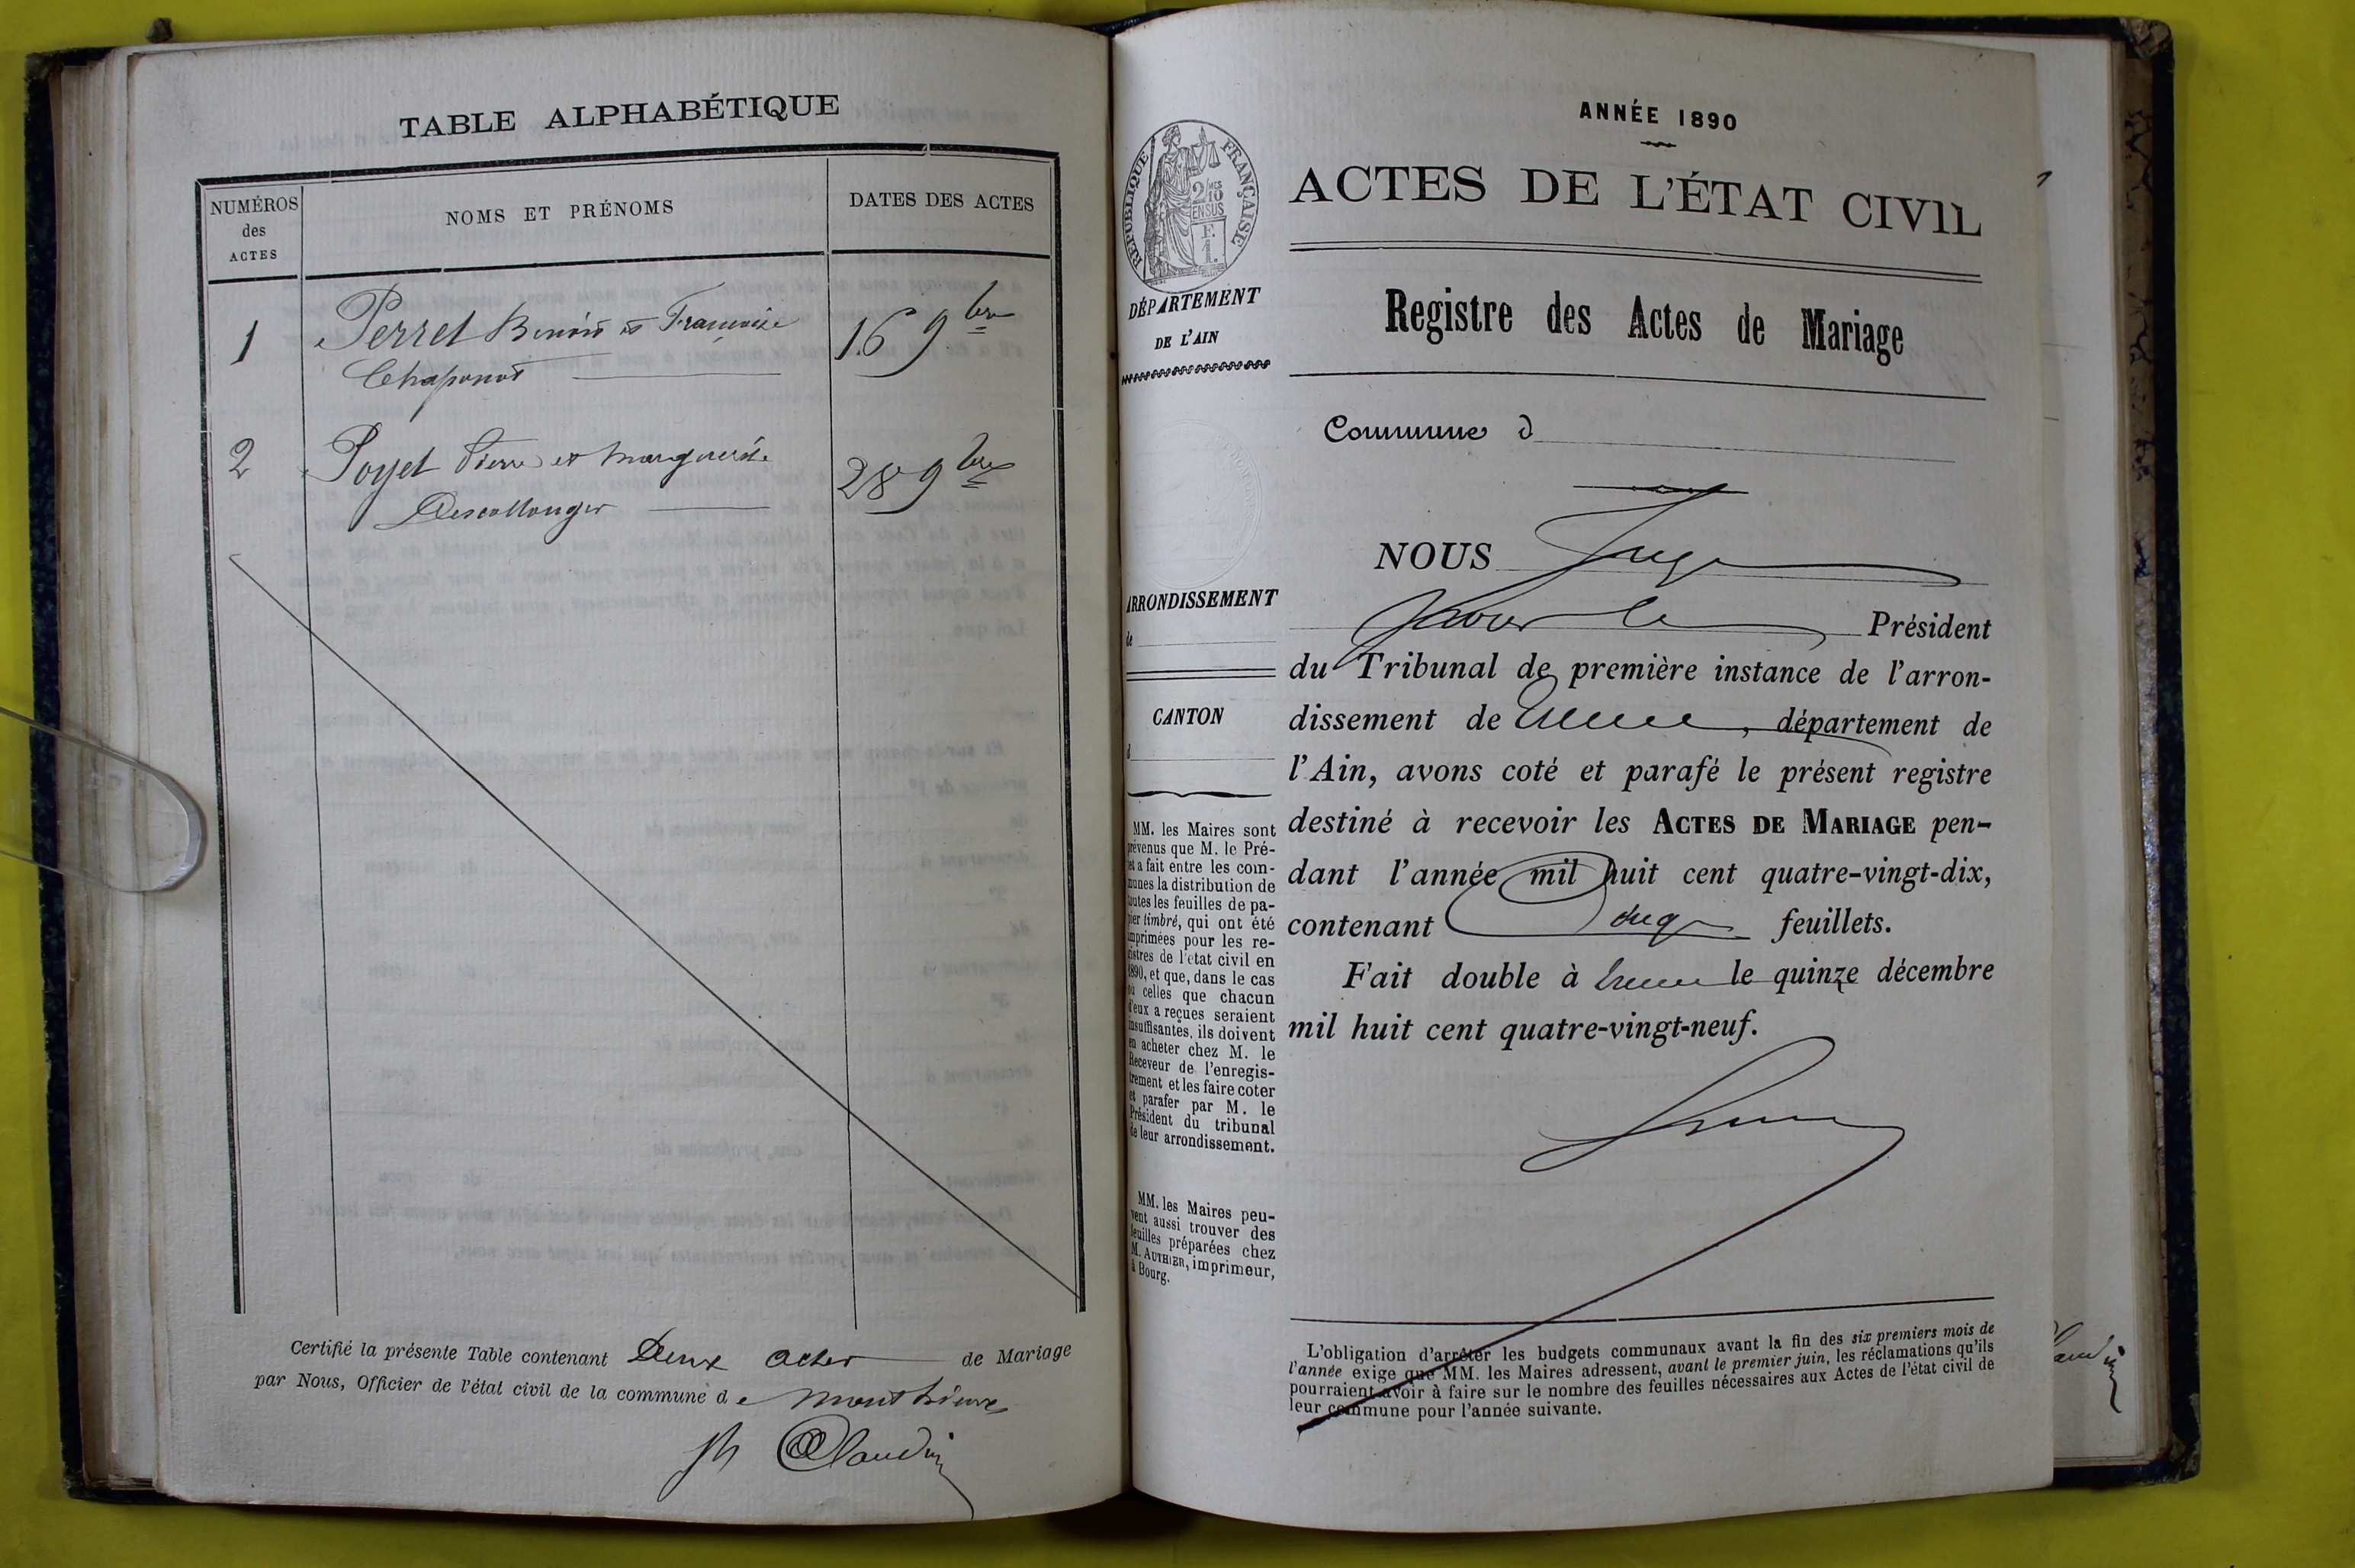 TABLE ALPHABÉTIQUE
NUMÉROS
des
ACTES
NOMS ET PRÉNOMS
DATES DES ACTES
1
Perret Benoît et Françoise
Chaponot
16 9bre
2
Poyet Pierre et Marguerite
Descollonges
28 9bre
Certifié la présente Table contenant Deux actes de Mariage
par Nous, Officier de l'état civil de la commune de Monthieux
Claudin
ANNÉE 1890
RÉPUBLIQUE FRANÇAISE
2/10MES
EN SUS
F.
1.
ACTES DE L'ÉTAT CIVIL
DÉPARTEMENT
DE L'AIN
Registre des Actes de Mariage
Commune d
NOUS Juge
pour le Président
ARRONDISSEMENT
de
du Tribunal de première instance de l'arron-
CANTON
d
dissement de Trévoux, département de
l'Ain, avons coté et parafé le présent registre
destiné à recevoir les ACTES DE MARIAGE pen-
dant l'année mil huit cent quatre-vingt-dix,
contenant feuillets.
Fait double à Trévoux le quinze décembre
mil huit cent quatre-vingt-neuf.
MM. les Maires sont
prévenus que M. le Pré-
fet a fait entre les com-
munes la distribution de
toutes les feuilles de pa-
pier timbré, qui ont été
imprimées pour les re-
gistres de l'état civil en
1890, et que, dans le cas
où celles que chacun
d'eux a reçues seraient
insuffisantes, ils doivent
en acheter chez M. le
Receveur de l'enregis-
trement et les faire coter
et parafer par M. le
Président du tribunal
de leur arrondissement.
MM. les Maires peu-
vent aussi trouver des
feuilles préparées chez
M. AUTHIER, imprimeur,
à Bourg.
L'obligation d'arrêter les budgets communaux avant la fin des six premiers mois de
l'année exige que MM. les Maires adressent, avant le premier juin, les réclamations qu'ils
pourraient avoir à faire sur le nombre des feuilles nécessaires aux Actes de l'état civil de
leur commune pour l'année suivante.